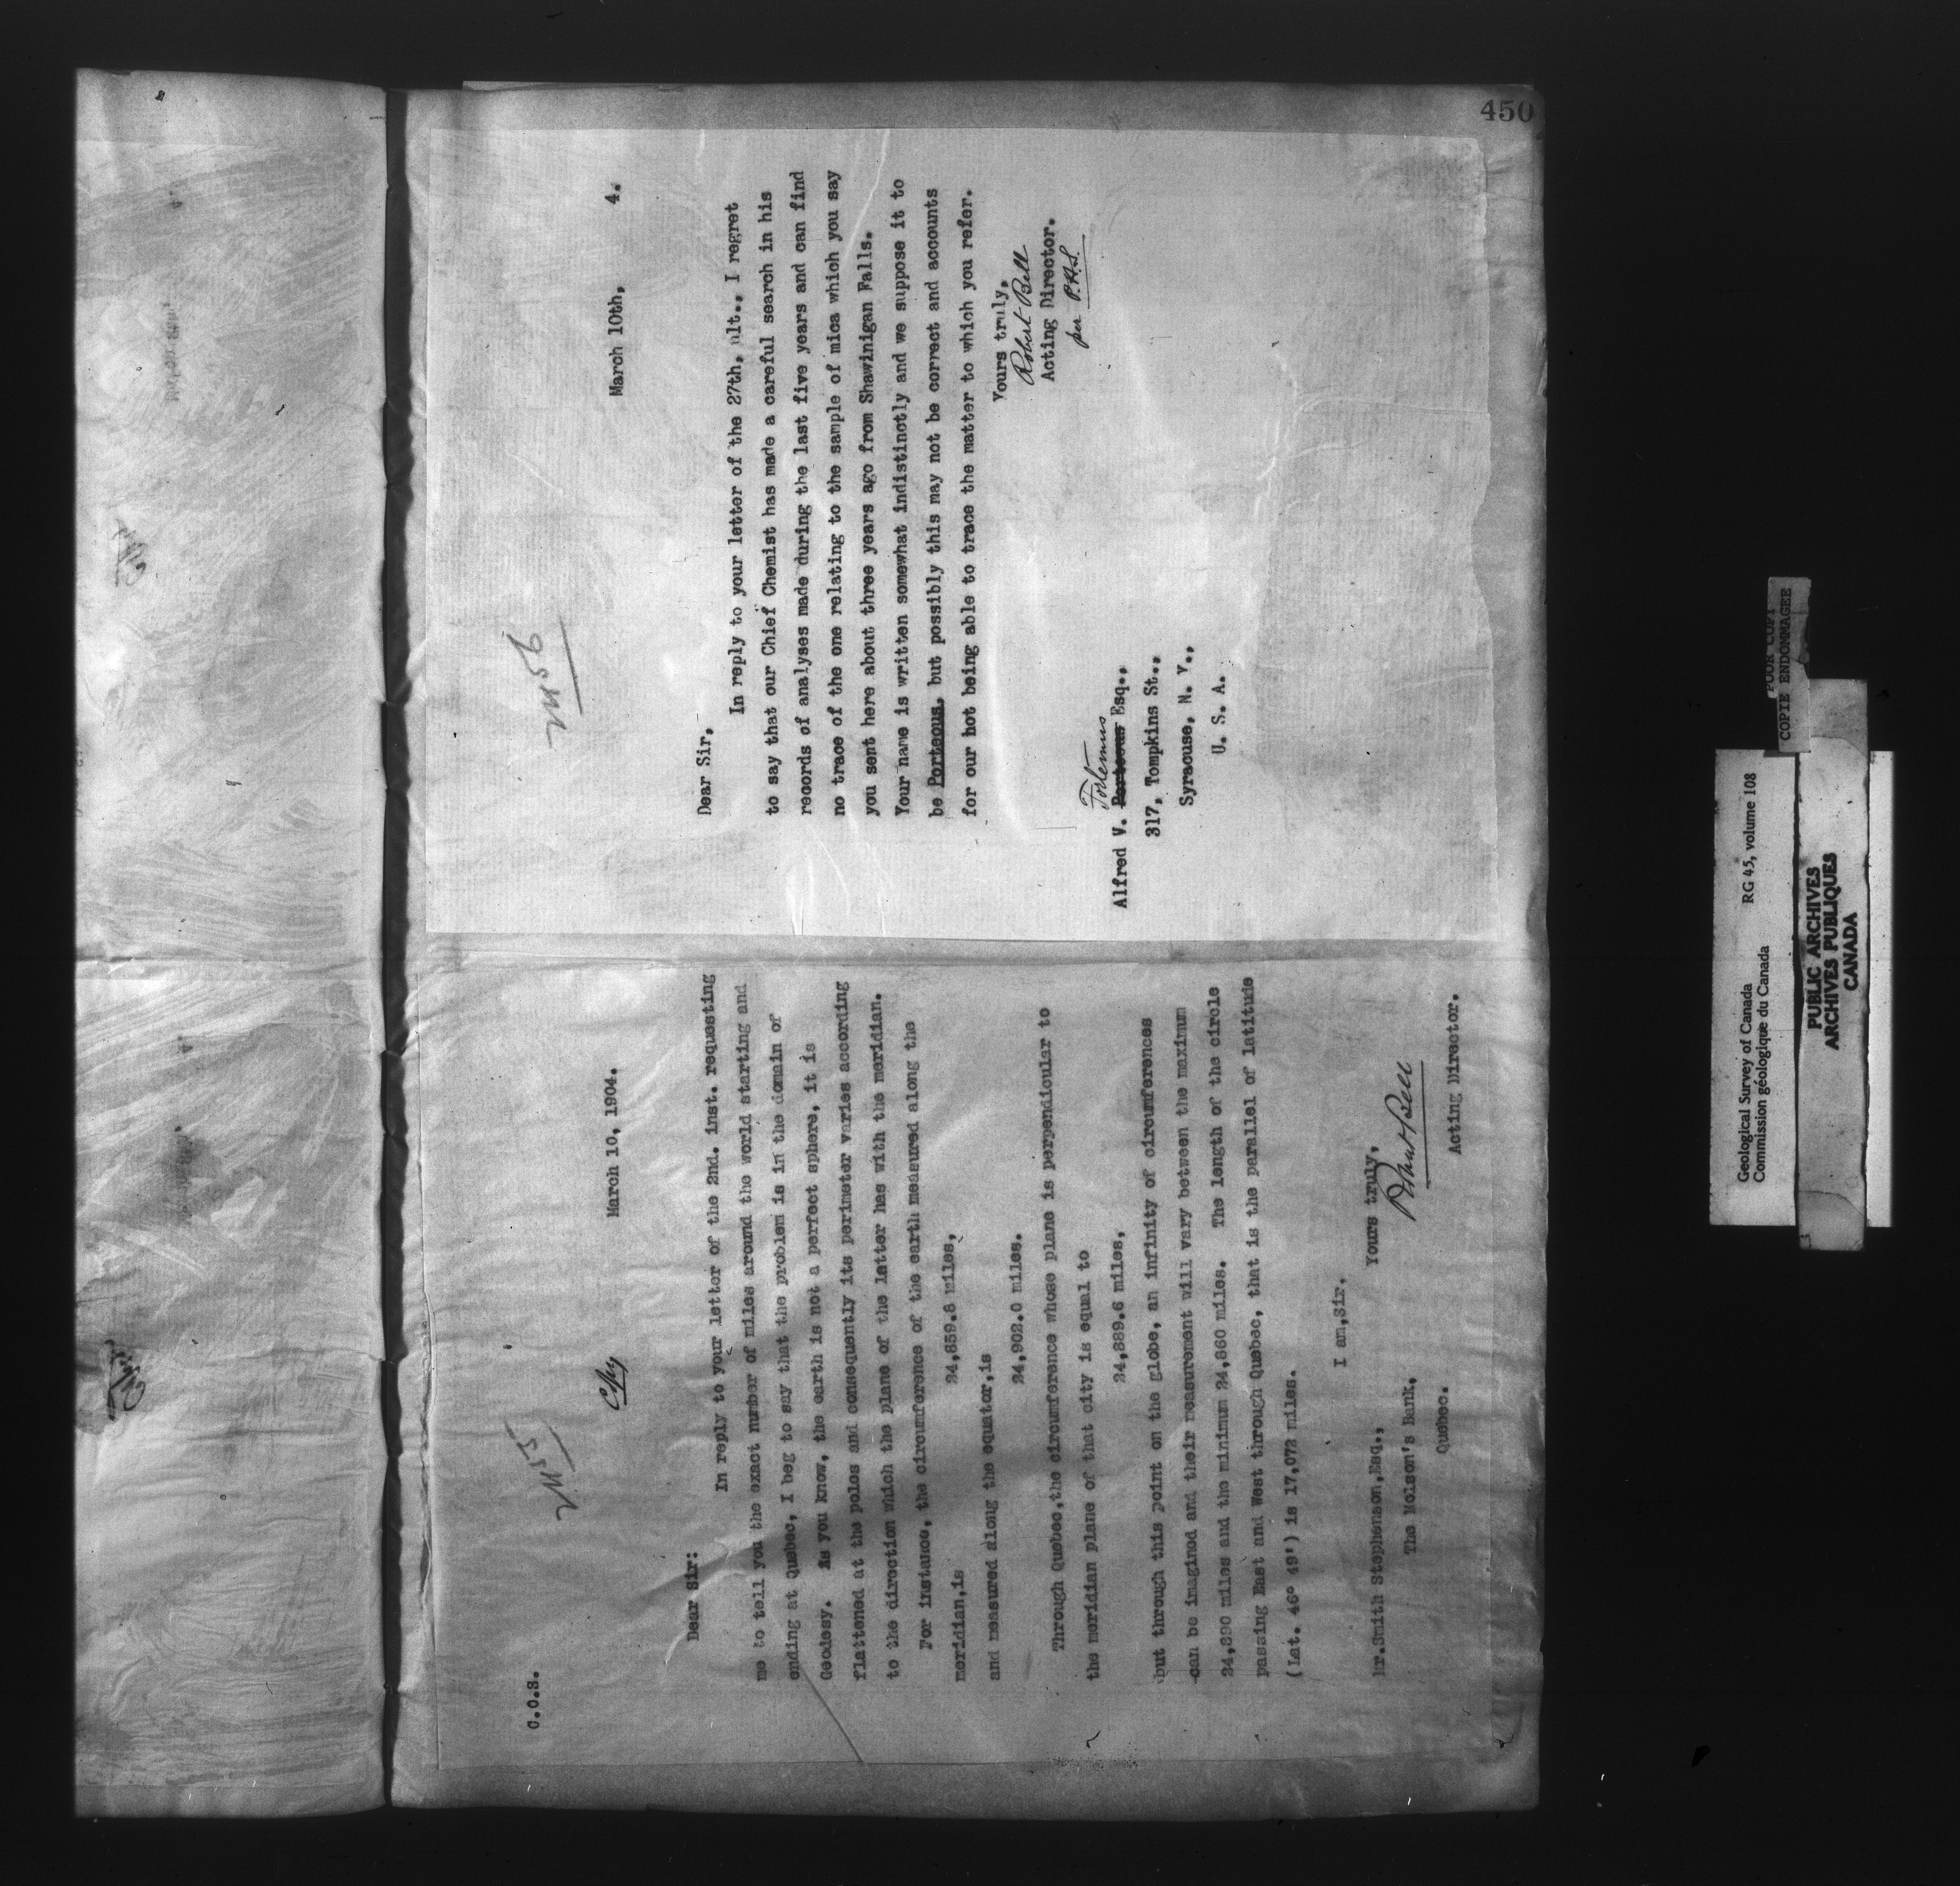 450
C.O.S.
Copy
March 10, 1904.
Dear Sir:
In reply to your letter of the 2nd. inst. requesting
me to tell you the exact number of miles around the world starting and
ending at Quebec, I beg to say that the problem is in the domain of
Geodesy. As you know, the earth is not a perfect sphere, it is
flattened at the poles and consequently its perimeter varies according
to the direction which the plane of the latter has with the meridian.
For instance, the circumference of the earth measured along the
meridian,is
24,859.8 miles,
and measured along the equator,is
24,902.0 miles.
Through Quebec,the circumference whose plane is perpendicular to
the meridian plane of that city is equal to
24,889.6 miles,
but through this point on the globe, an infinity of circumferences
can be imagined and their measurement will vary between the maximum
24,890 miles and the minimum 24,860 miles. The length of the circle
passing East and West through Quebec, that is the parallel of latitude
(Lat. 46° 49') is 17,072 miles.
I am,Sir,
Yours truly,
Robert Bell
Acting Director.
Mr.Smith Stephenson,Esq.,
The Molson's Bank,
Quebec.
March 10th, 4.
Dear Sir,
In reply to your letter of the 27th, ult., I regret
to say that our Chief Chemist has made a careful search in his
records of analyses made during the last five years and can find
no trace of the one relating to the sample of mica which you say
you sent here about three years ago from Shawinigan Falls.
Your name is written somewhat indistinctly and we suppose it to
be Porteous, but possibly this may not be correct and accounts
for our hot being able to trace the matter to which you refer.
Yours truly,
Robert Bell
Acting Director.
per P.H.S.
Alfred V. Porteous Esq.,
317, Tompkins St.,
Syracuse, N. Y.,
U. S. A.
POOR COPY
COPIE ENDOMMAGEE
Geological Survey of Canada RG 45, volume 108
Commission géologique du Canada
PUBLIC ARCHIVES
ARCHIVES PUBLIQUES
CANADA